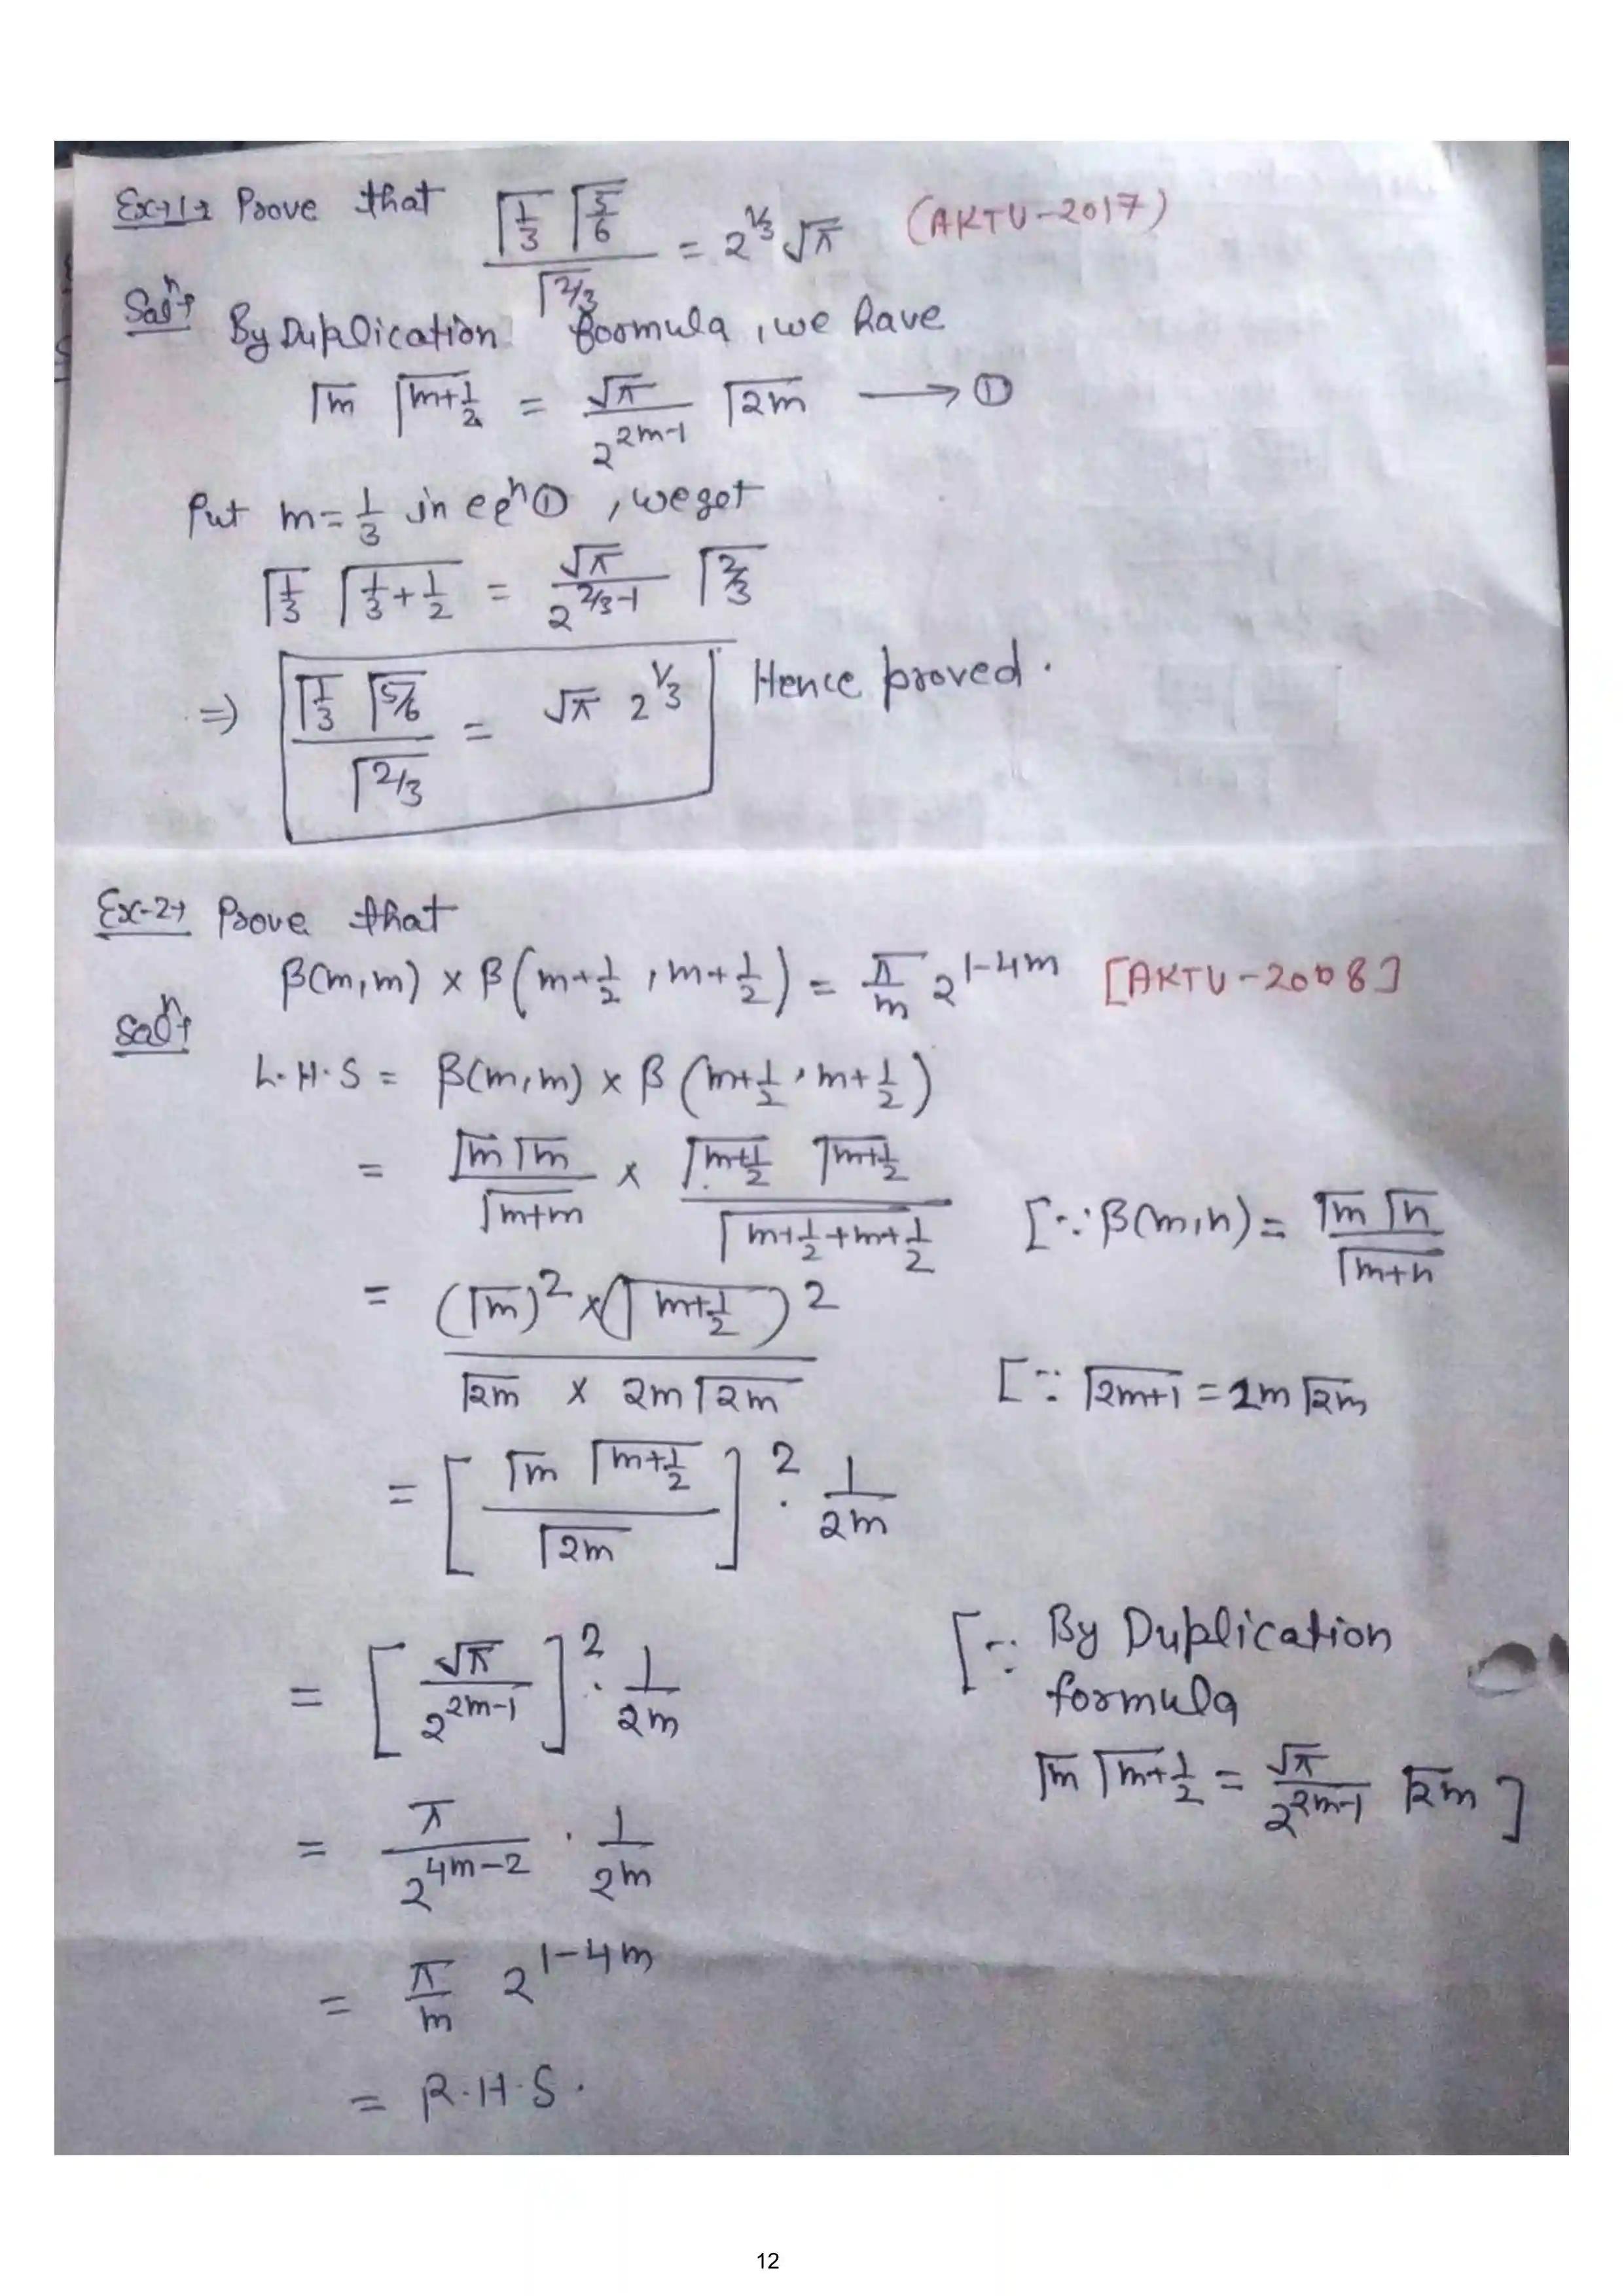 Ex-1→ Prove that (⌈1/3 ⌈5/6)/⌈2/3 = 2^{1/3} √π (AKTU-2017)
Solⁿ→ By Duplication formula, we have
⌈m ⌈m+1/2 = √π/2^{2m-1} ⌈2m ⟶ ①
Put m = 1/3 in eqⁿ ①, we get
⌈1/3 ⌈1/3+1/2 = √π/2^{2/3-1} ⌈2/3
⇒ (⌈1/3 ⌈5/6)/⌈2/3 = √π 2^{1/3} Hence proved.
Ex-2→ Prove that
β(m,m) × β(m+1/2, m+1/2) = π/m 2^{1-4m} [AKTU-2008]
Solⁿ→
L.H.S = β(m,m) × β(m+1/2, m+1/2)
= (⌈m ⌈m)/⌈m+m × (⌈m+1/2 ⌈m+1/2)/⌈m+1/2+m+1/2 [∵ β(m,n) = (⌈m ⌈n)/⌈m+n
= ((⌈m)² × (⌈m+1/2)²)/(⌈2m × 2m⌈2m) [∵ ⌈2m+1 = 2m ⌈2m
= [(⌈m ⌈m+1/2)/⌈2m]² · 1/2m
= [√π/2^{2m-1}]² · 1/2m [∵ By Duplication
formula
⌈m ⌈m+1/2 = √π/2^{2m-1} ⌈2m]
= π/2^{4m-2} · 1/2m
= π/m 2^{1-4m}
= R.H.S.
12